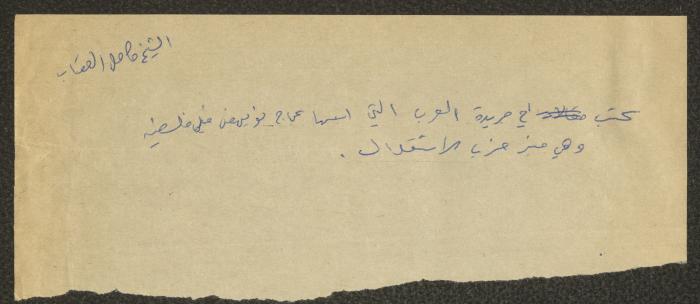 الشيخ كامل القصاب
يكتب في جريدة العرب التي اسسها عجاج نويهض في فلسطين
وهي منبر حزب الاستقلال .